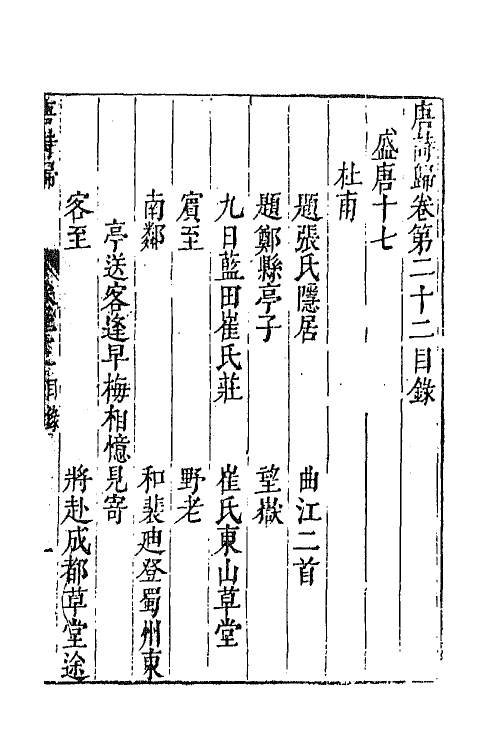 唐詩歸卷第二十二目錄
盛唐十七
杜甫
題張氏隱居　曲江二首
題鄭縣亭子　望嶽
九日藍田崔氏莊　崔氏東山草堂
賓至　野老
南鄰　和裴迪登蜀州東
亭送客逢早梅相憶見寄
客至　將赴成都草堂途
唐詩歸
目錄
一